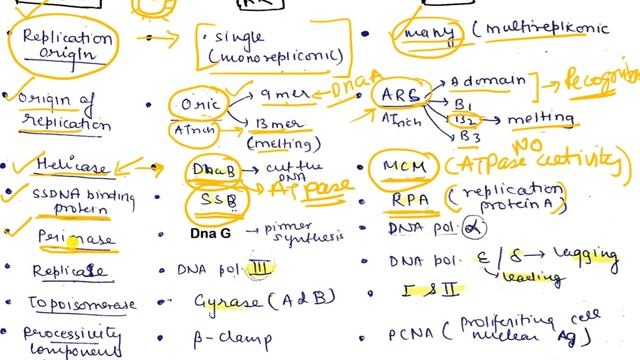 • Replication origin → • single (monorepliconic) • many (multirepliconic
• Origin of replication • Oric 9 mer ← DnaA • ARS A domain → Recognition
ATrich → 13 mer (melting) ATrich B1
B2 → melting
B3
• Helicase • DnaB → cut the DNA • MCM (NO ATPase activity)
→ ATPase
• SSDNA binding protein • SSB • RPA (replication protein A)
• Primase Dna G → primer synthesis • DNA pol α
• Replicase • DNA pol III • DNA pol. ε / δ → lagging
leading
• Topoisomerase • Gyrase (A & B) • I & II
• processivity component • β-clamp • PCNA (Proliferating cell nuclear Ag)